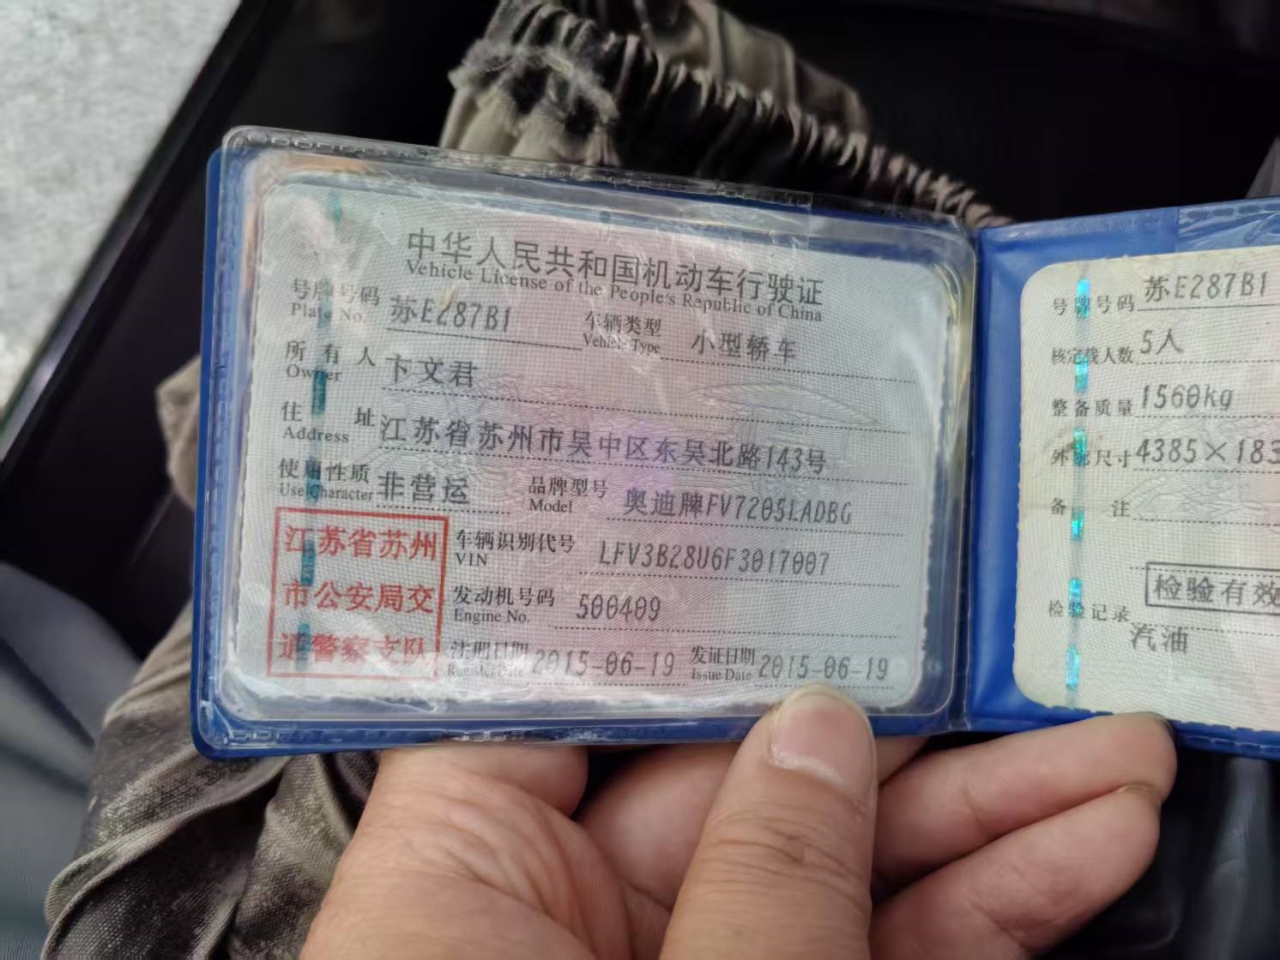 中华人民共和国机动车行驶证
Vehicle License of the People's Republic of China
号牌号码 苏E287B1 车辆类型 小型轿车
Plate No. Vehicle Type
所有人 卞文君
Owner
住址 江苏省苏州市吴中区东吴北路143号
Address
使用性质 非营运 品牌型号 奥迪牌FV7205LADBG
Use Character Model
江苏省苏州
市公安局交
通警察支队
车辆识别代号 LFV3B28U6F3017007
VIN
发动机号码 500409
Engine No.
注册日期 2015-06-19 发证日期 2015-06-19
Issue Date
号牌号码 苏E287B1
核定载人数 5人
整备质量 1560kg
外廓尺寸 4385×183
备注
检验有效
检验记录
汽油